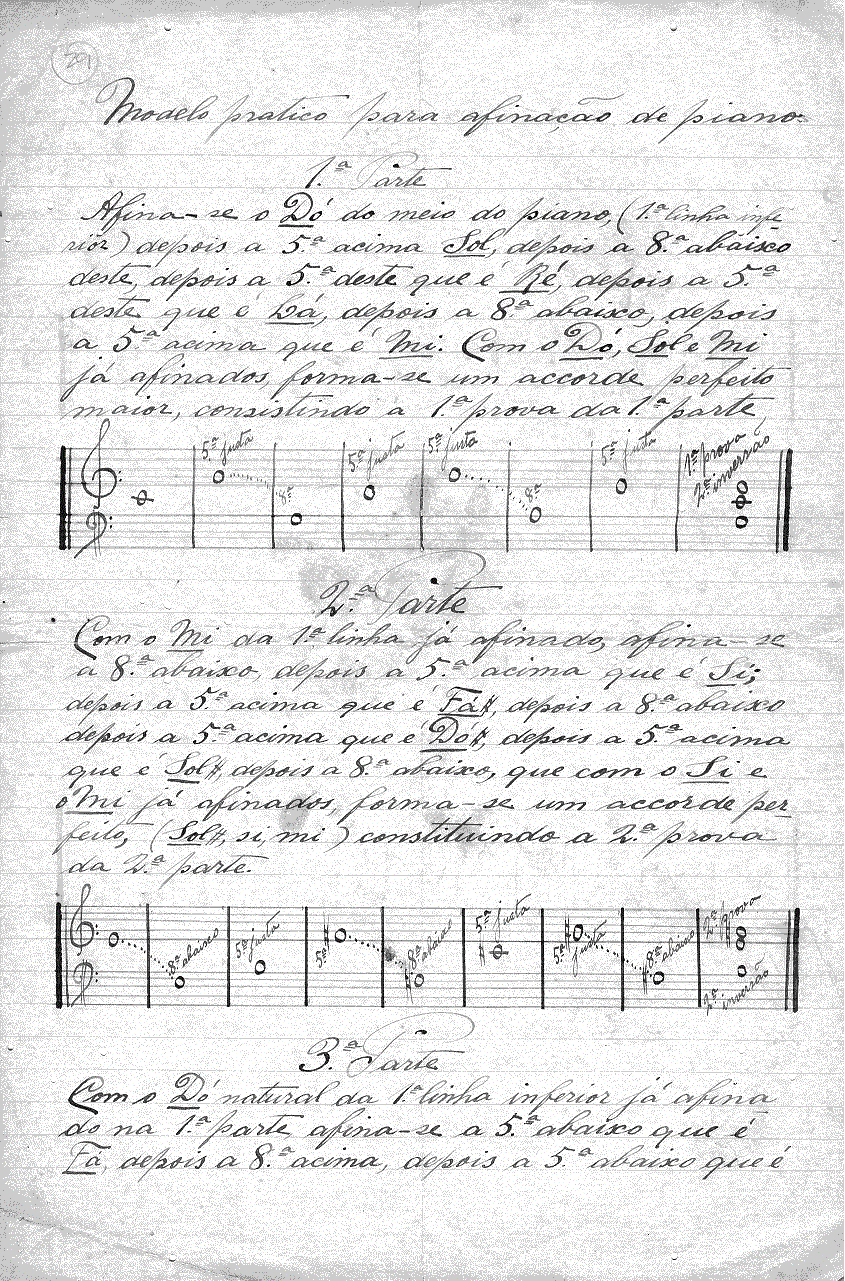 201
Modelo pratico para afinação de piano.
1.ª Parte
Afina-se o Dó do meio do piano, (1.ª linha infe
rior) depois a 5.ª acima Sol, depois a 8.ª abaixo
deste, depois a 5.ª deste que é Ré, depois a 5.ª
deste que é Lá, depois a 8ª abaixo, depois
a 5ª acima que é Mi. Com o Dó, Sol e Mi
já afinados, forma-se um accorde perfeito
maior, consistindo a 1ª prova da 1ª parte,
5ª justa 8ª 5ª justa 5ª justa 8ª 5ª justa 1ª prova 2ª inversão
2.ª Parte
Com o Mi da 1ª linha já afinado, afina-se
a 8.ª abaixo, depois a 5.ª acima que é Si;
depois a 5.ª acima que é Fá#, depois a 8.ª abaixo
depois a 5.ª acima que é Dó#, depois a 5.ª acima
que é Sol#, depois a 8.ª abaixo, que com o Si e
o Mi já afinados, forma-se um accorde per_
feito, (Sol#, si, mi) constituindo a 2.ª prova
da 2.ª parte.
8ª abaixo 5ª justa 5ª 8ª abaixo 5ª justa 5ª justa 8ª abaixo 2ª prova 2ª inversão
3.ª Parte
Com o Dó natural da 1ª linha inferior já afina
do na 1.ª parte afina-se a 5.ª abaixo que é
Fá, depois a 8.ª acima, depois a 5.ª abaixo que é